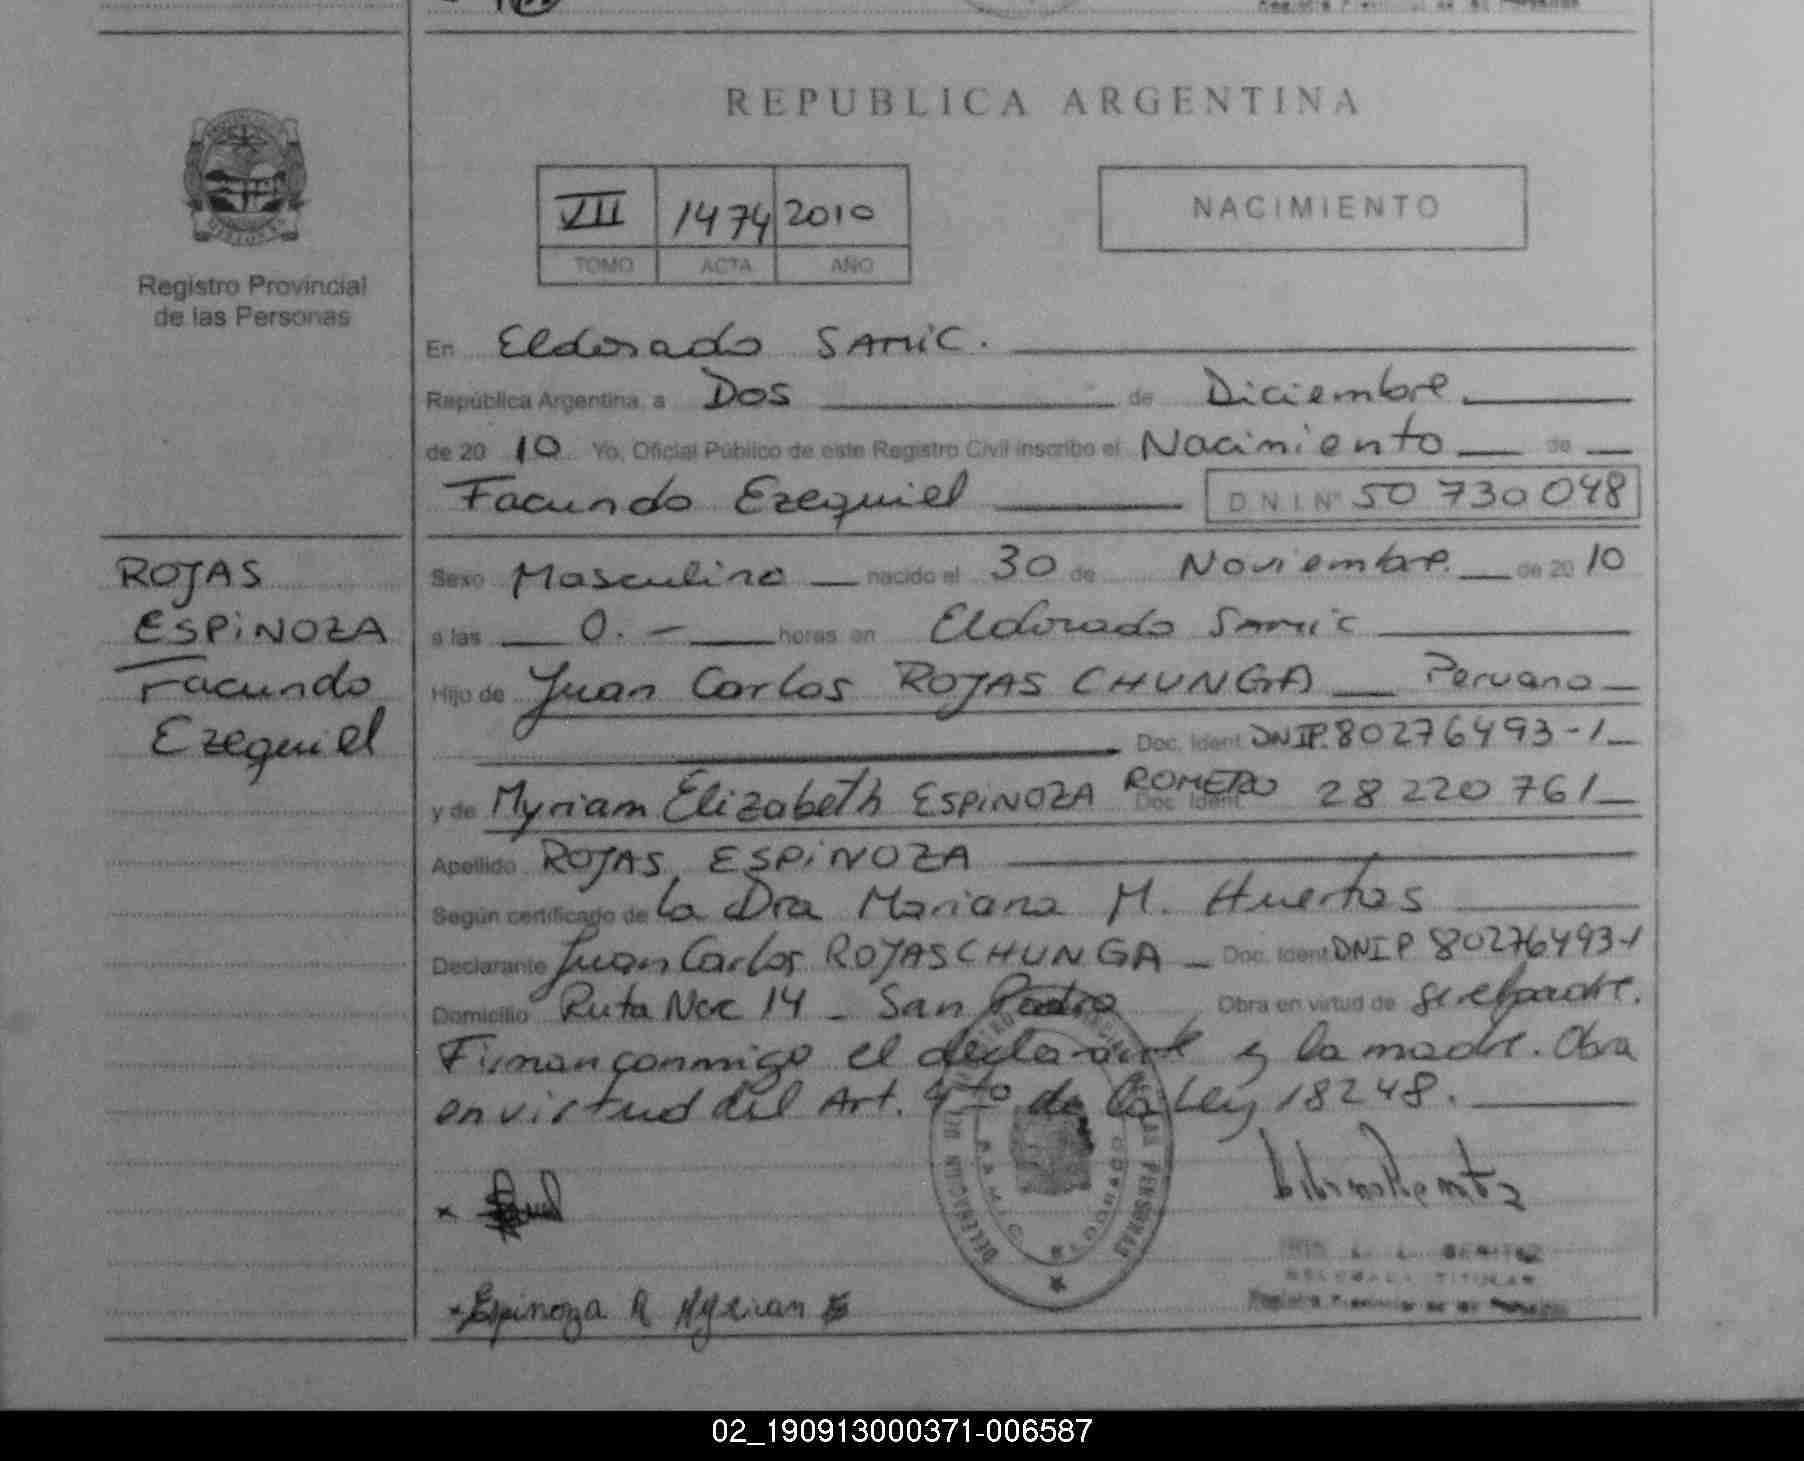 REPUBLICA ARGENTINA
VII 1474 2010
TOMO ACTA AÑO
NACIMIENTO
Registro Provincial
de las Personas
En Eldorado SAMiC.
República Argentina, a Dos de Diciembre
de 20 10 Yo, Oficial Público de este Registro Civil inscribo el Nacimiento de
Facundo Ezequiel D.N.I.Nº 50 730 048
ROJAS
ESPiNOZA
Facundo
Ezequiel
Sexo Masculino nacido el 30 de Noviembre de 20 10
a las 0. horas en Eldorado Samic
Hijo de Juan Carlos ROJAS CHUNGA Peruano
Doc. Ident. DNIP. 80276493-1
y de Myriam Elizabeth ESPiNOZA ROMERO Doc. Ident. 28 220 761
Apellido ROJAS ESPiNOZA
Según certificado de la Dra Mariana M. Huertas
Declarante Juan Carlos ROJAS CHUNGA Doc. Ident. DNIP 80276493-1
Domicilio Ruta Nac 14 - San Pedro Obra en virtud de ser el padre.
Firman conmigo el declarante y la madre. Obra
en virtud del Art. 4to de la Ley 18248.
DELEGACION DE LAS PERSONAS
SAMIC ELDORADO
L. BENITEZ
DELEGADA TITULAR
Registro Provincial de las Personas
Espinoza R Myriam E
02_190913000371-006587